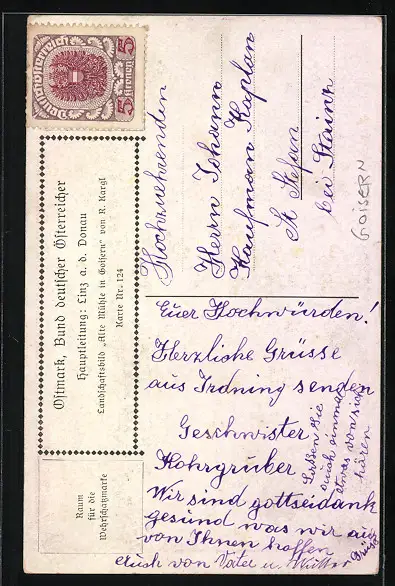 Deutschösterreich
5 Kronen 5
Ostmark, Bund deutscher Österreicher
Hauptleitung: Linz a. d. Donau
Landschaftsbild „Alte Mühle in Goisern“ von R. Kargl
Karte Nr. 124
Raum
für die
Wehrschatzmarke
Hochzuehrenden
Herrn Johann
Kaufman Kaplan
St Stefan
bei Stainz
GOISERN
Euer Hochwürden!
Herzliche Grüsse
aus Irdning senden
Geschwister
Rohrgruber
Wir sind gottseidank
gesund was wir auch
von Ihnen hoffen
Auch von Vater u. Mutter
Grüsse
Lassen Sie
auch einmal
etwas von sich
hören